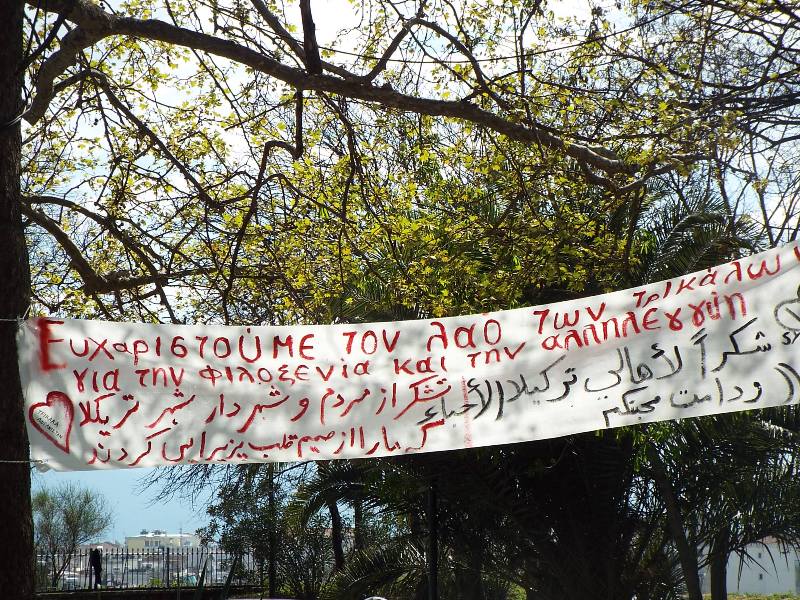 Ευχαριστούμε τον λαό των τρικάλων
για την φιλοξενία και την αλληλέγγύη
تشکر از مردم و شهردار شهر تریکلا
که مارا از صمیم قلب پزیرایی کردند
شكراً لأهالي تركيلا الأحباء
ودامت محبتكم